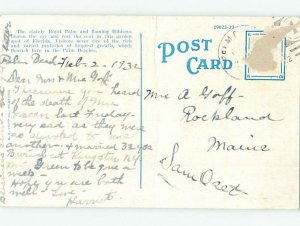 The stately Royal Palm and flaming Hibiscus
charm the eye and rest the soul in this garden
spot of Florida. Visitors never tire of the rich
and varied profusion of tropical growth, which
flourish here in the Palm Beaches.
Palm Beach Feb-2-1932
Dear Mrs & Mr. Goff.
I presume you heard
of the death of Mrs
Green last Friday
very sad as they were
so devoted to one
another & married 32 yrs
Burial at Kingston NY
Mr. Green to be gone a
week
Hope you are both
well "Love"
Harriet
29822-29
POST
CARD
Mrs A Goff-
Rockland
Maine